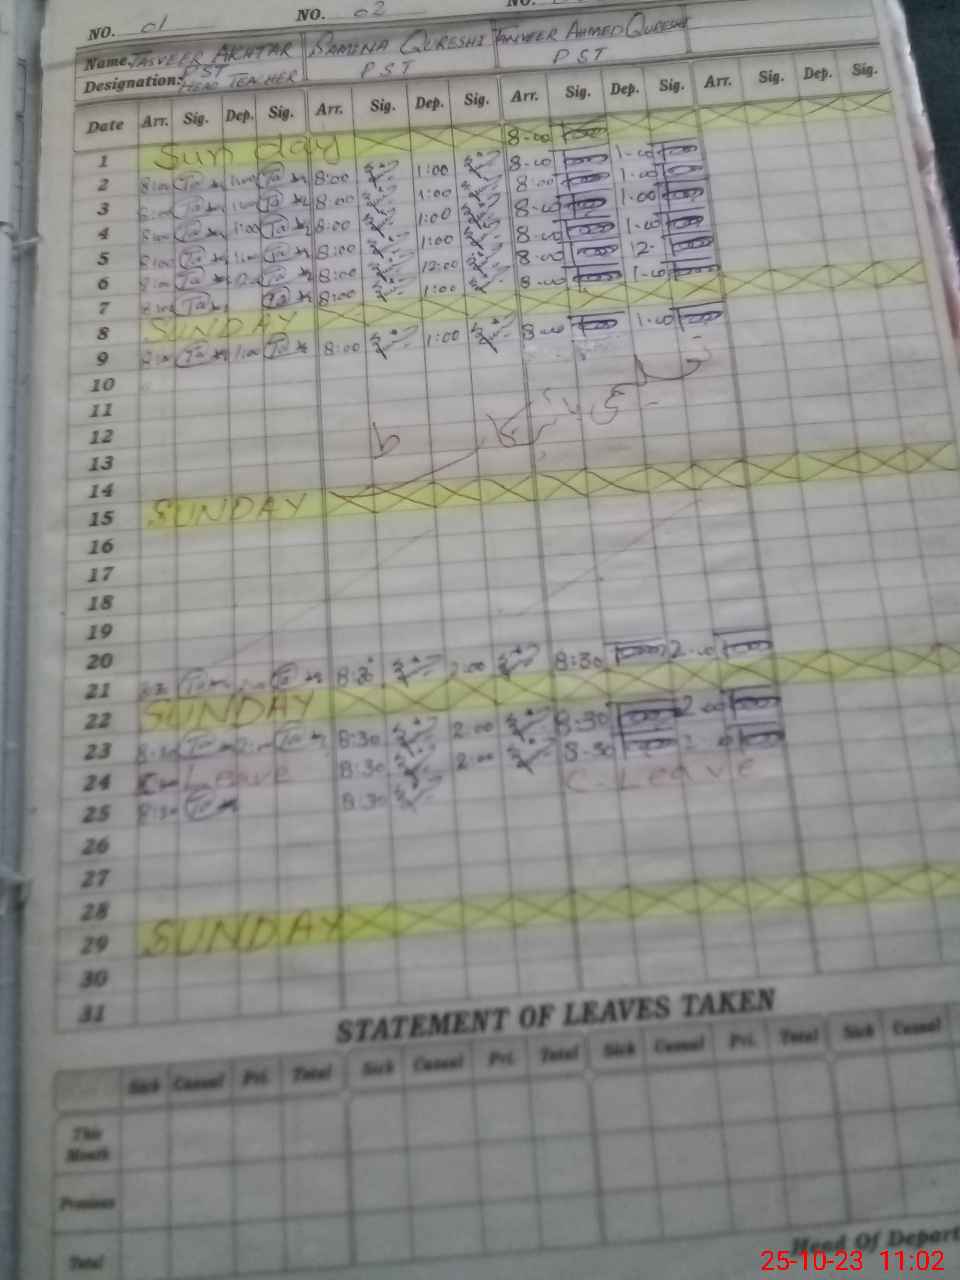 NO. 01 NO. 02 NO.
Name, TASVEER AKHTAR SAMINA QURESHI TANVEER AHMED QURESHI
Designation: PST HEAD TEACHER PST PST
Date Arr. Sig. Dep. Sig. Arr. Sig. Dep. Sig. Arr. Sig. Dep. Sig. Arr. Sig. Dep. Sig.
1 Sunday 8-00
2 8:00 1:00 8:00 1:00 8-00 1-00
3 8:00 1:00 8:00 1:00 8:00 1-00
4 8:00 1:00 8:00 1:00 8-00 1-00
5 8:00 1:00 8:00 1:00 8-00 1-00
6 8:00 8:00 12:00 8-00 12-
7 8:00 8:00 1:00 8-00 1-00
8 SUNDAY
9 8:00 1:00 8:00 1:00 8-00 1-00
10
11
12
13
14
15 SUNDAY
16
17
18
19
20
21 8:30 2:00 8:30 2-00
22 SUNDAY
23 8:30 2:00 8:30 2:00 8:30 2-00
24 C-Leave 8:30 2:00 8-30
25 8:30 8:30 C.Leave
26
27
28
29 SUNDAY
30
31
STATEMENT OF LEAVES TAKEN
Sick Casual Pri. Total Sick Casual Pri. Total Sick Casual Pri. Total Sick Casual
This Month
Previous
Total
Head Of Depart
25-10-23 11:02